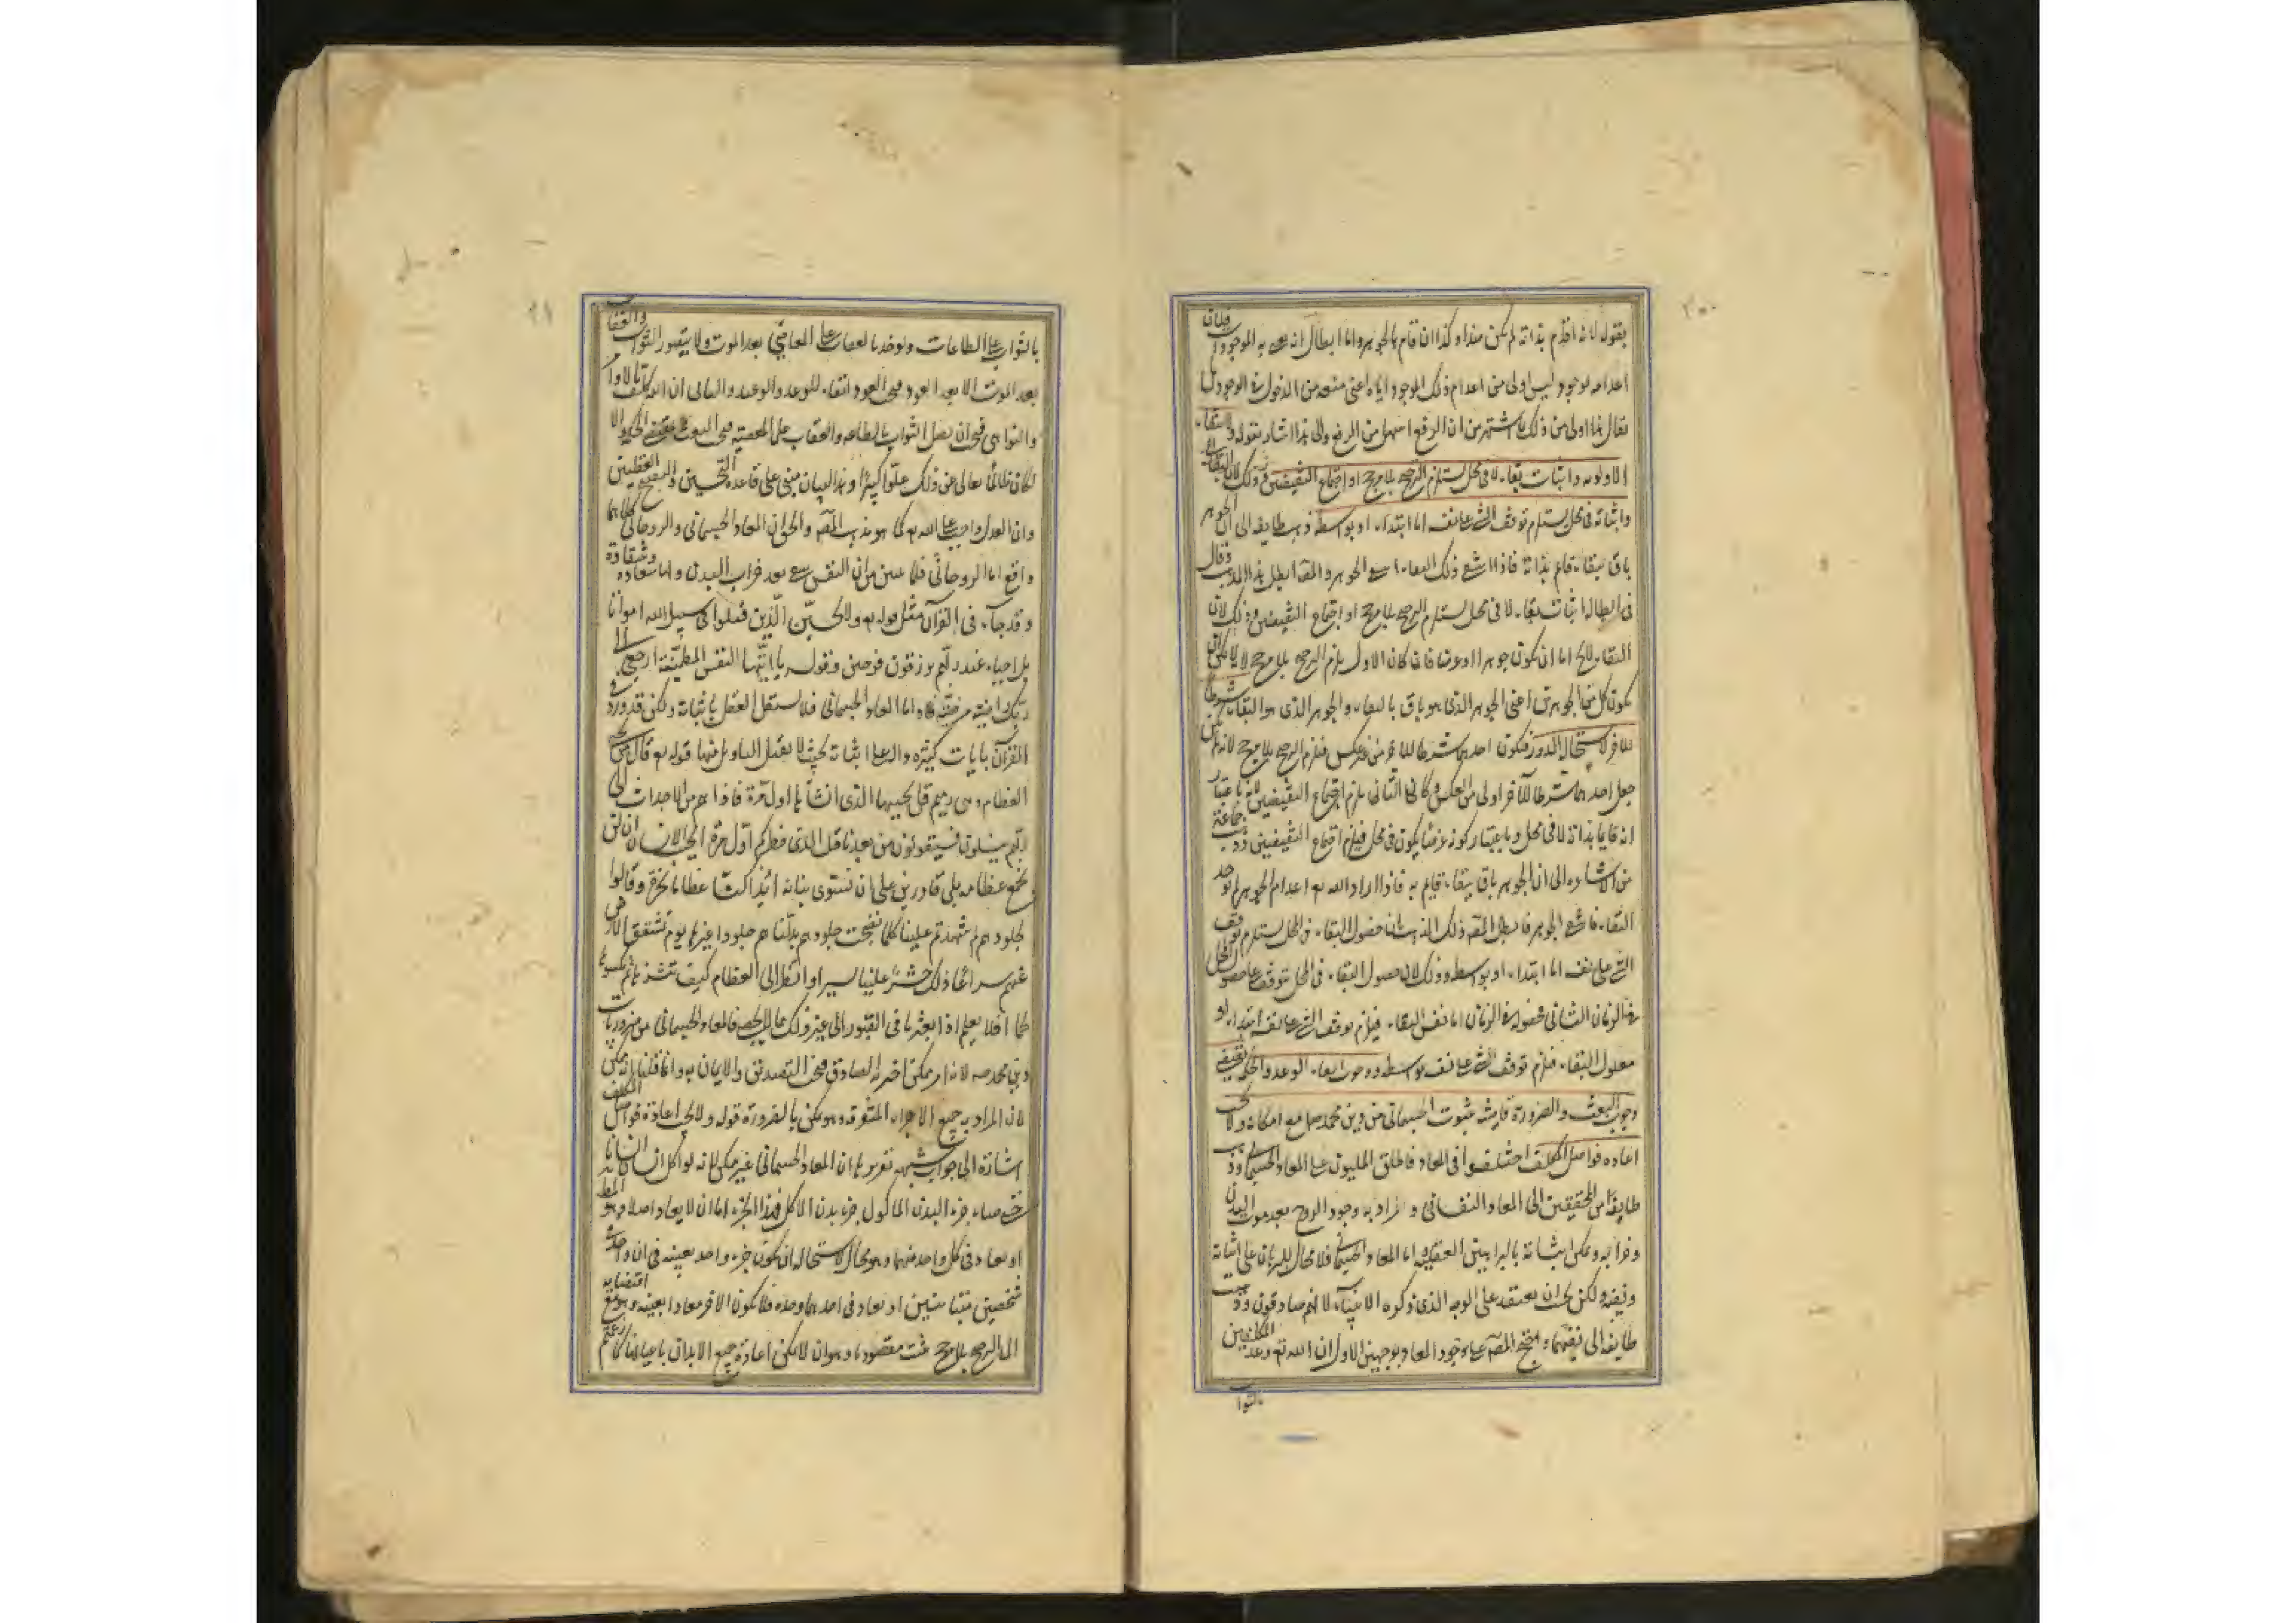 بقوله لانه اذا قام بذاته لم يكن ضدا وكذا ان قام بالجوهر واما ابطال انه
اعدامه لوجود ليس اولى من اعدام ذلك الموجود اياه اعنى منعه من الدخول في الوجود
يقال انما اولى من ذلك لما اشتهر من ان الدفع اسهل من الرفع والى هذا اشار بقوله وانتفاء
الاولوية واثبات بقاء لا فى محل يستلزم الترجيح بلا مرجح او اجتماع النقيضين وذلك لان البقاء
واثباته فى محل يستلزم توقف الشئ على نفسه اما ابتداء او بواسطة ذهب طايفة الى ان الجوهر
باق ببقاء قائم بذاته فاذا انتفى ذلك البقاء انتفى الجوهر والمص ابطل هذا المذهب وقال
فى ابطاله اثبات بقاء لا فى محل يستلزم الترجيح بلا مرجح او اجتماع النقيضين وذلك لان
البقاء لا يخ اما ان يكون جوهرا او عرضا فان كان الاول يلزم الترجيح بلا مرجح
يكون كل من الجوهرين اعنى الجوهر الذى هو باق بالبقاء والجوهر الذى هو البقاء شرطا
للاخر لاستحالة الدور فيكون احدهما شرطا للاخر من غير عكس فيلزم الترجيح بلا مرجح لانه لم يكن
جعل احدهما شرطا للآخر اولى من العكس وان كان الثانى يلزم اجتماع النقيضين لانه باعتبار
انه قايما بذاته لا فى محل وباعتبار كونه عرضا يكون فى محل فيلزم اجتماع النقيضين وذهب جماعة
من الاشاعرة الى ان الجوهر باق ببقاء قايم به فاذا اراد الله تع اعدام الجوهر لم يوجد
البقاء فانتفى الجوهر فابطل المص ذلك المذهب بان حصول البقاء فى المحل يستلزم توقف
الشئ على نفسه اما ابتداء او بواسطة وذلك لان حصول البقاء فى المحل يتوقف على حصول المحل
فى الزمان الثانى فحصوله فى الزمان اما نفس البقاء فيلزم توقف الشئ على نفسه ابتداء او
معلول البقاء فيلزم توقف الشئ على نفسه بواسطة ووجوب ايفاء الوعد والحكمة يقتضى
وجوب البعث والضرورة قاضية بثبوت الجسمانى من دين محمد صلعم مع امكانه ولا يجب
اعادة فواضل المكلف اختلفوا فى المعاد فاطلق المليون على المعاد الجسمانى وذهب
طايفة من المحققين الى المعاد النفسانى والمراد به وجود الروح بعد موت البدن
وخرابه ويمكن اثباته بالبراهين العقلية اما المعاد الجسمانى فلا مجال للبرهان على اثباته
ونفيه ولكن يجب ان يعتقد على الوجه الذى ذكره الانبياء لانهم صادقون وذهبت
طايفة الى نفيهما واحتج المص على وجود المعاد بوجهين الاول ان الله تع وعد المكلفين
بالثواب
بالثواب على الطاعات وتوعد بالعقاب على المعاصى بعد الموت ولا يتصور الثواب والعقاب
بعد الموت الا بعد العود فيجب العود ايفاء للوعد والوعيد والثانى ان الله كلف بالاوامر
والنواهى فيجب ان يصل الثواب بالطاعة والعقاب على المعصية فيجب البعث بمقتضى الحكمة والا
لكان ظالما تعالى عن ذلك علوّا كبيرا وهذا البيان مبنى على قاعدة التحسين والتقبيح العقليين
وان العدل واجب على الله تع كما هو مذهب المص والحق ان المعاد الجسمانى والروحانى كلاهما
واقع اما الروحانى فلما تبين من ان النفس تبقى بعد خراب البدن ولها سعادة وشقاوة
وقد جاء فى القرآن مثل قوله تع ولا تحسبنّ الّذين قتلوا فى سبيل الله امواتا
بل احياء عند ربّهم يرزقون فرحين وقوله يا ايّتها النفس المطمئنّة ارجعى الى
ربّك راضية مرضيّة واما المعاد الجسمانى فلا يستقل العقل باثباته ولكن قد ورد فى
القرآن بايات كثيرة دالة على اثباته بحيث لا يقبل التاويل منها قوله تع قال من يحى
العظام وهى رميم قل يحييها الذى انشأها اول مرّة فاذا هم من الاجداث الى
ربّهم ينسلون فسيقولون من يعيدنا قل الذى فطركم اوّل مرّة ايحسب الانسان ان لن
نجمع عظامه بلى قادرين على ان نسوّى بنانه ائذا كنّا عظاما نخرة وقالوا
لجلودهم لم شهدتم علينا كلما نضجت جلودهم بدّلناهم جلودا غيرها يوم تشقّق الارض
عنهم سراعا ذلك حشر علينا يسير وانظر الى العظام كيف ننشزها ثم نكسوها
لحما افلا يعلم اذا بعثر ما فى القبور الى غير ذلك مما لا يحصى فالمعاد الجسمانى من ضروريات
دين محمد صه لانه امر ممكن اخبر به الصادق فيجب التصديق والايمان به وانما قلنا انه ممكن
لان المراد به جمع الاجزاء المتفرقة وهو ممكن بالضرورة قوله ولا يجب اعادة فواضل المكلف
اشارة الى جواب شبهة تقريرها ان المعاد الجسمانى غير ممكن لانه لو اكل انسان انسانا
حتى صار جزء البدن الماكول جزء بدن الاكل فهذا الجزء اما ان لا يعاد اصلا وهو المط
او يعاد فى كل واحد منهما وهو محال لاستحالة ان يكون جزء واحد بعينه فى ان واحد فى
شخصين متباينين او يعاد فى احدهما وحده فلا يكون الاخر معادا بعينه وهو مع افضائه
الى الترجيح بلا مرجح يثبت مقصودنا وهو ان لا يمكن اعادة جميع الابدان باعيانها كما زعمتم